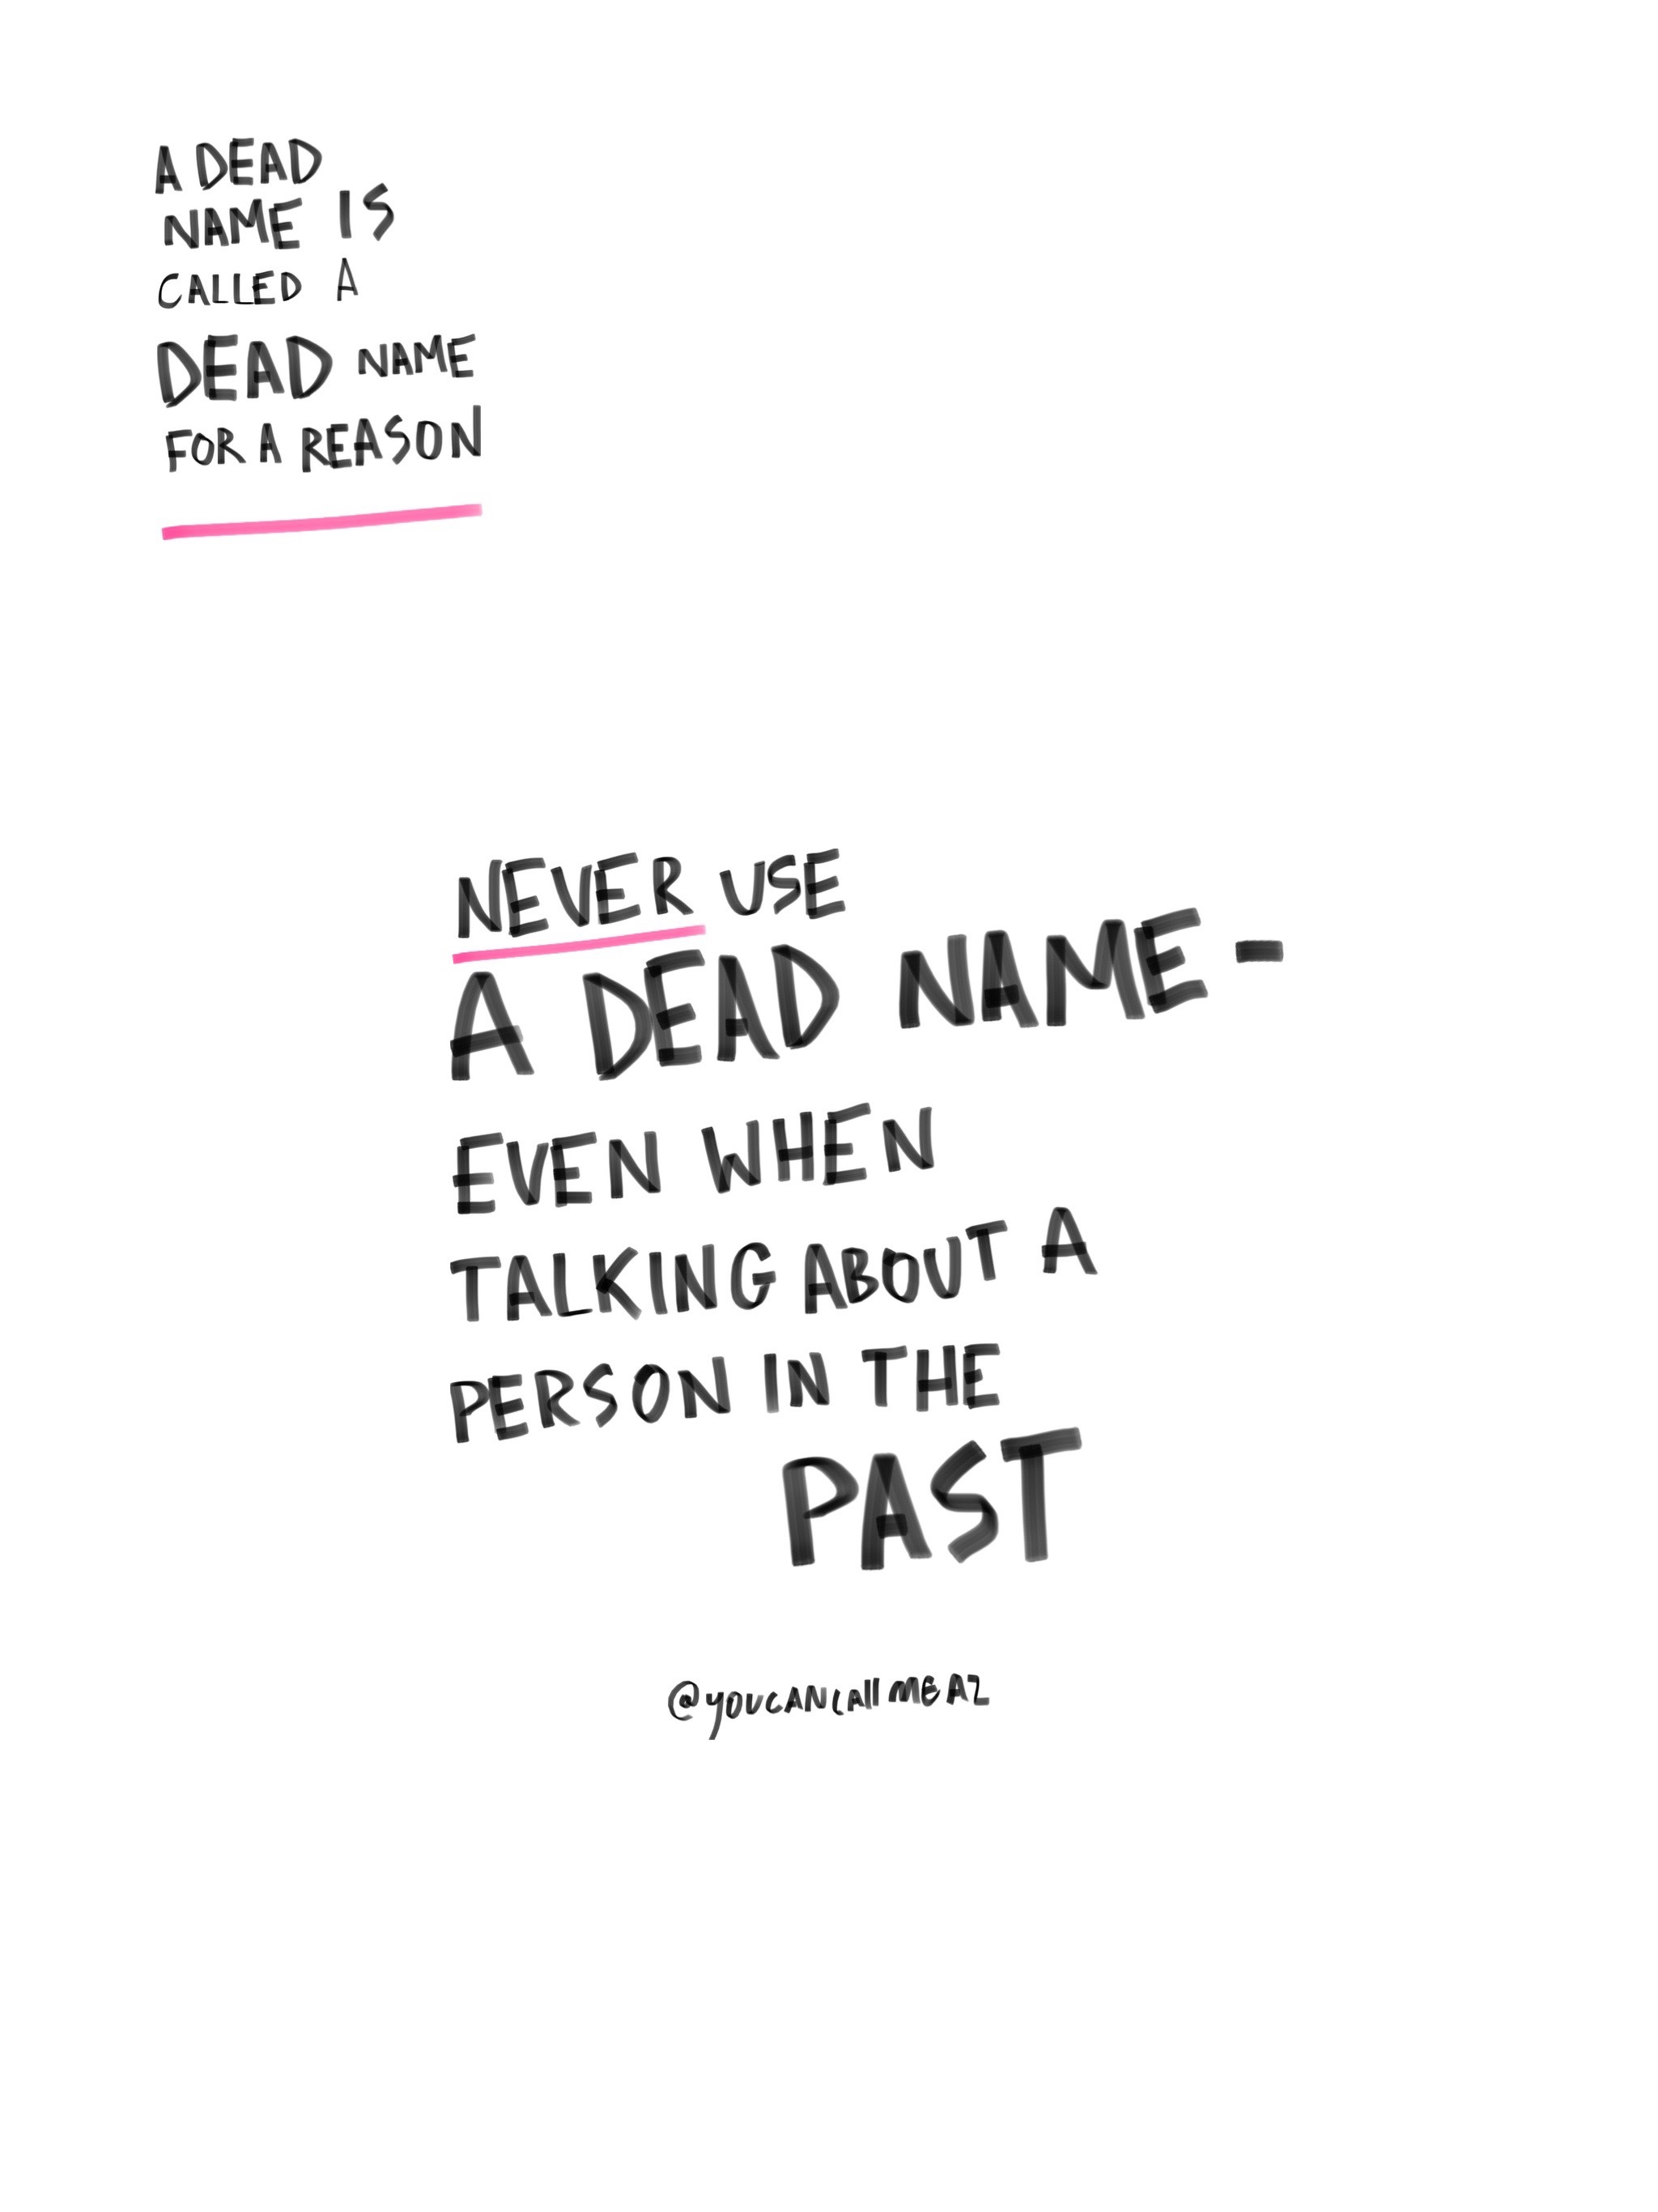 A DEAD
NAME IS
CALLED A
DEAD NAME
FOR A REASON
NEVER USE
A DEAD NAME -
EVEN WHEN
TALKING ABOUT A
PERSON IN THE
PAST
@youcANcAll MEAZ